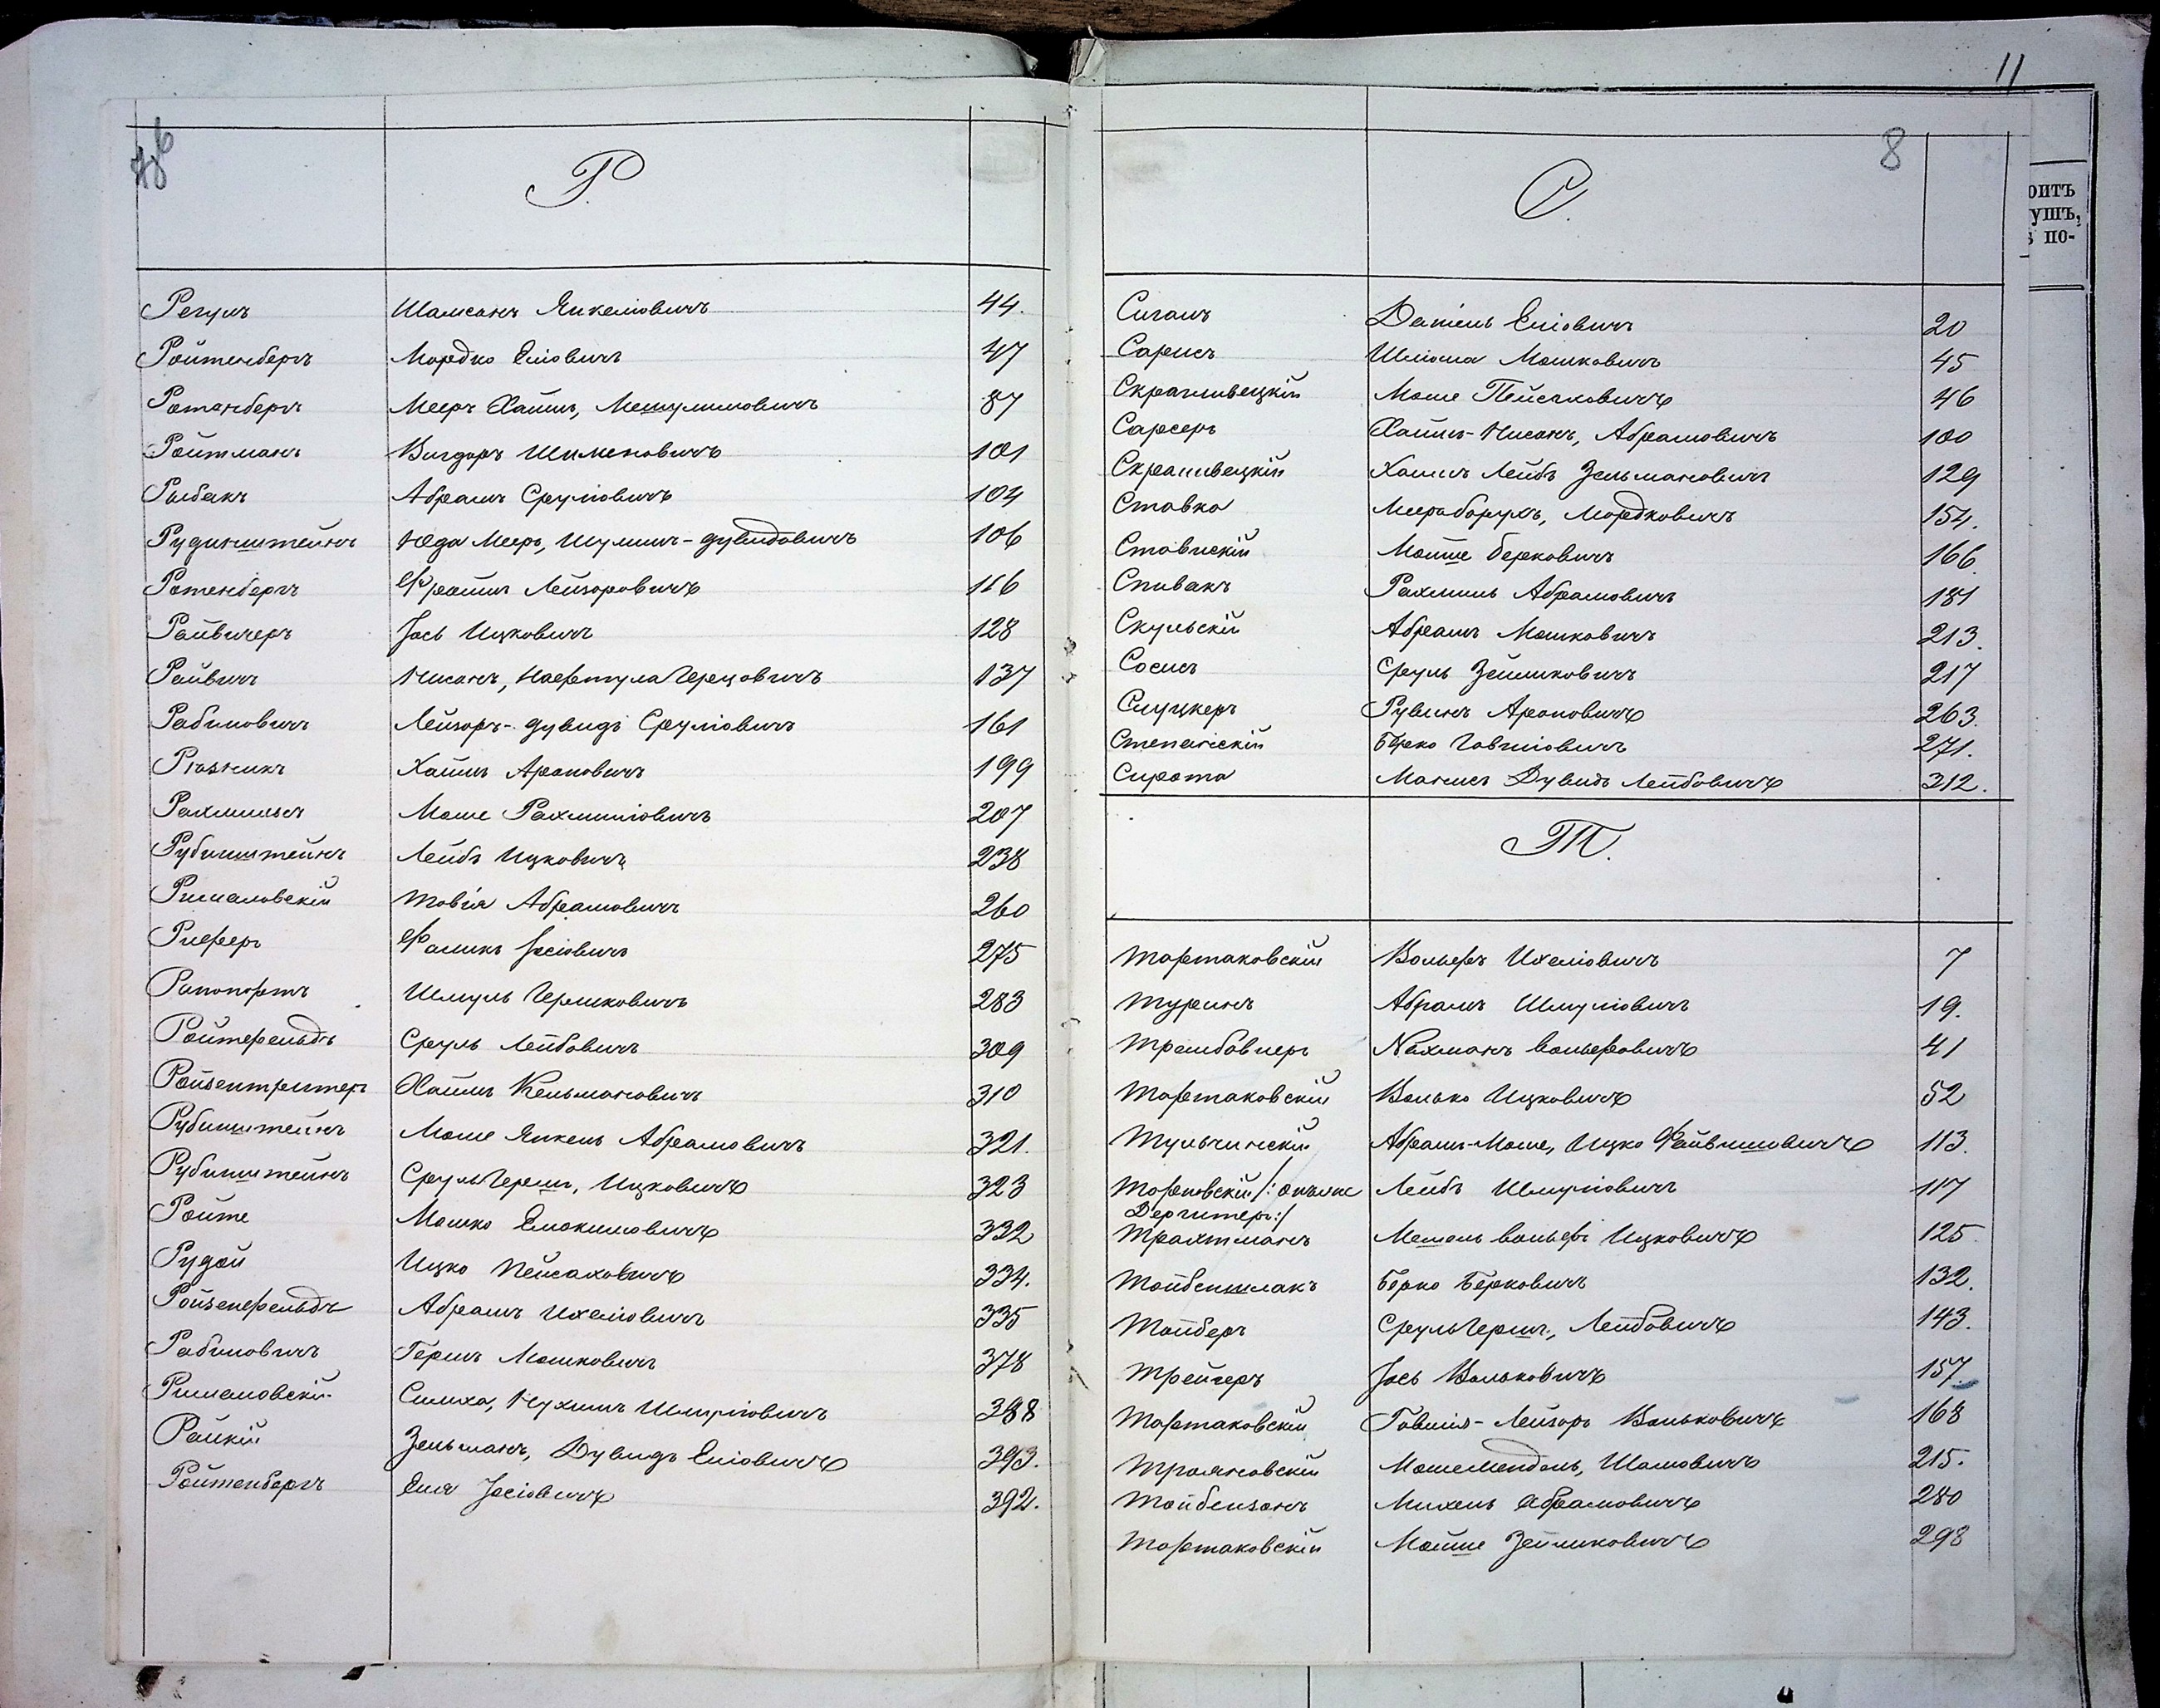 11
Р.
Регушъ Шамсонъ Янкеліовичъ 44.
Ройтенбергъ Мордко Еліовичъ 47
Ротенбергъ Мееръ Хаимъ, Мешулимовичъ 87
Ройтманъ Вигдоръ Шименовичъ 101
Рыбакъ Абрамъ Сруліовичъ 104
Рудинштейнъ Юда Мееръ, Шулимъ-Дувидовичъ 106
Ротенбергъ Фроимъ Лейзоровичъ 116
Райвичеръ Јось Ицковичъ 128
Райвичъ Нисонъ, Нафтула Герцовичъ 137
Рабиновичъ Лейзоръ-Дувидъ Сруліовичъ 161
Хаимъ Ароновичъ 199
Рахмильчъ Моше Рахмиліовичъ 207
Рубинштейнъ Лейбъ Ицковичъ 238
Рималовскій Товія Абрамовичъ 260
Риферъ Фаликъ Јосіовичъ 275
Рапопортъ Шмуль Гершковичъ 283
Ройтефельдъ Сруль Лейбовичъ 309
Ройзентретеръ Хаимъ Кельмановичъ 310
Рубинштейнъ Моше Янкель Абрамовичъ 321.
Рубинштейнъ Сруль Гершъ, Ицковичъ 323
Ройте Мошко Елюкимовичъ 332
Рудой Ицко Пейсаховичъ 334.
Ройзенфельдъ Абрамъ Ихеліовичъ 335
Рабиновичъ Гершъ Мошковичъ 378
Рималовскій Симха, Нухимъ Шмуліовичъ 388
Райкій Зельманъ, Дувидъ Еліовичъ 393.
Ройтенбергъ Еля Јосіовичъ 392.
8
С.
Сиганъ Даніель Еліовичъ 20
Сарисъ Шлиома Мошковичъ 45
Скрагливецкій Моше Пейсаховичъ 46
Сарсеръ Хаимъ-Нисонъ, Абрамовичъ 100
Скраливецкій Хаимъ Лейбъ Зельмановичъ 129
Ставка Меерборухъ, Мордковичъ 154.
Ставискій Мойше Берковичъ 166.
Спивакъ Рахмиль Абрамовичъ 181
Скульскій Абрамъ Мошковичъ 213.
Сосисъ Сруль Зейликовичъ 217
Слуцкеръ Рувинъ Ароновичъ 263.
Степанскій Берко Говшіовичъ 271.
Сирота Манисъ Дувидъ Лейбовичъ 312.
Т.
Тартаковскій Вольфъ Ихеліовичъ 7
Туринъ Абрамъ Шмуліовичъ 19.
Трамбовлеръ Нахманъ Вольфовичъ 41
Тартаковскій Волько Ицковичъ 52
Тульчинскій Абрамъ-Моше, Ицко Файвишовичъ 113.
Торговскій /: онъ же Лейбъ Шмуліовичъ 117
Дергитеръ :/
Трахтманъ Мошель Вольфъ Ицковичъ 125.
Тойбеншлакъ Берко Берковичъ 132.
Тойберъ Сруль Гершъ, Лейбовичъ 143.
Трейгеръ Јось Вольковичъ 157.
Тартаковскій Говшія-Лейзоръ Вольковичъ 168
Трояновскій Мошемендель, Шамовичъ 215.
Тойбензонъ Михель Абрамовичъ 280
Тартаковскій Мойше Зейликовичъ 298
оитъ
ушъ,
ъ по-